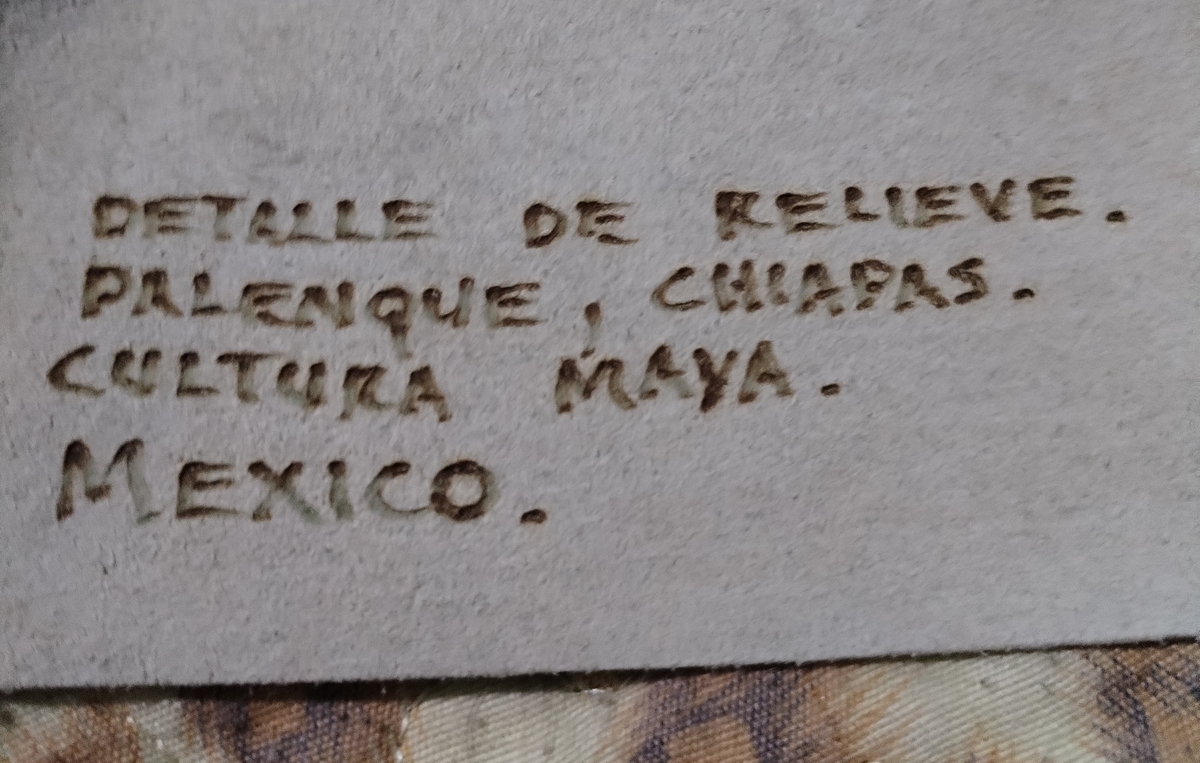 DETALLE DE RELIEVE.
PALENQUE, CHIAPAS.
CULTURA MAYA.
MEXICO.